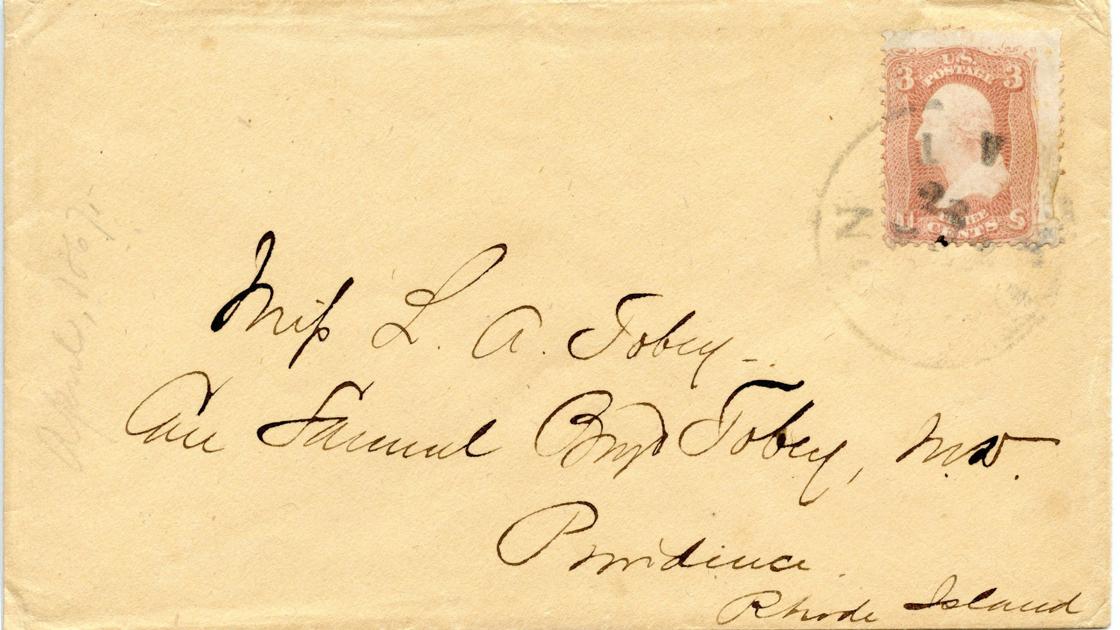 U.S.
POSTAGE
3 3
CENTS
U S
April, 1867.
Miss L. A. Tobey
Care Samuel Boyd Tobey, M.D.
Providence
Rhode Island